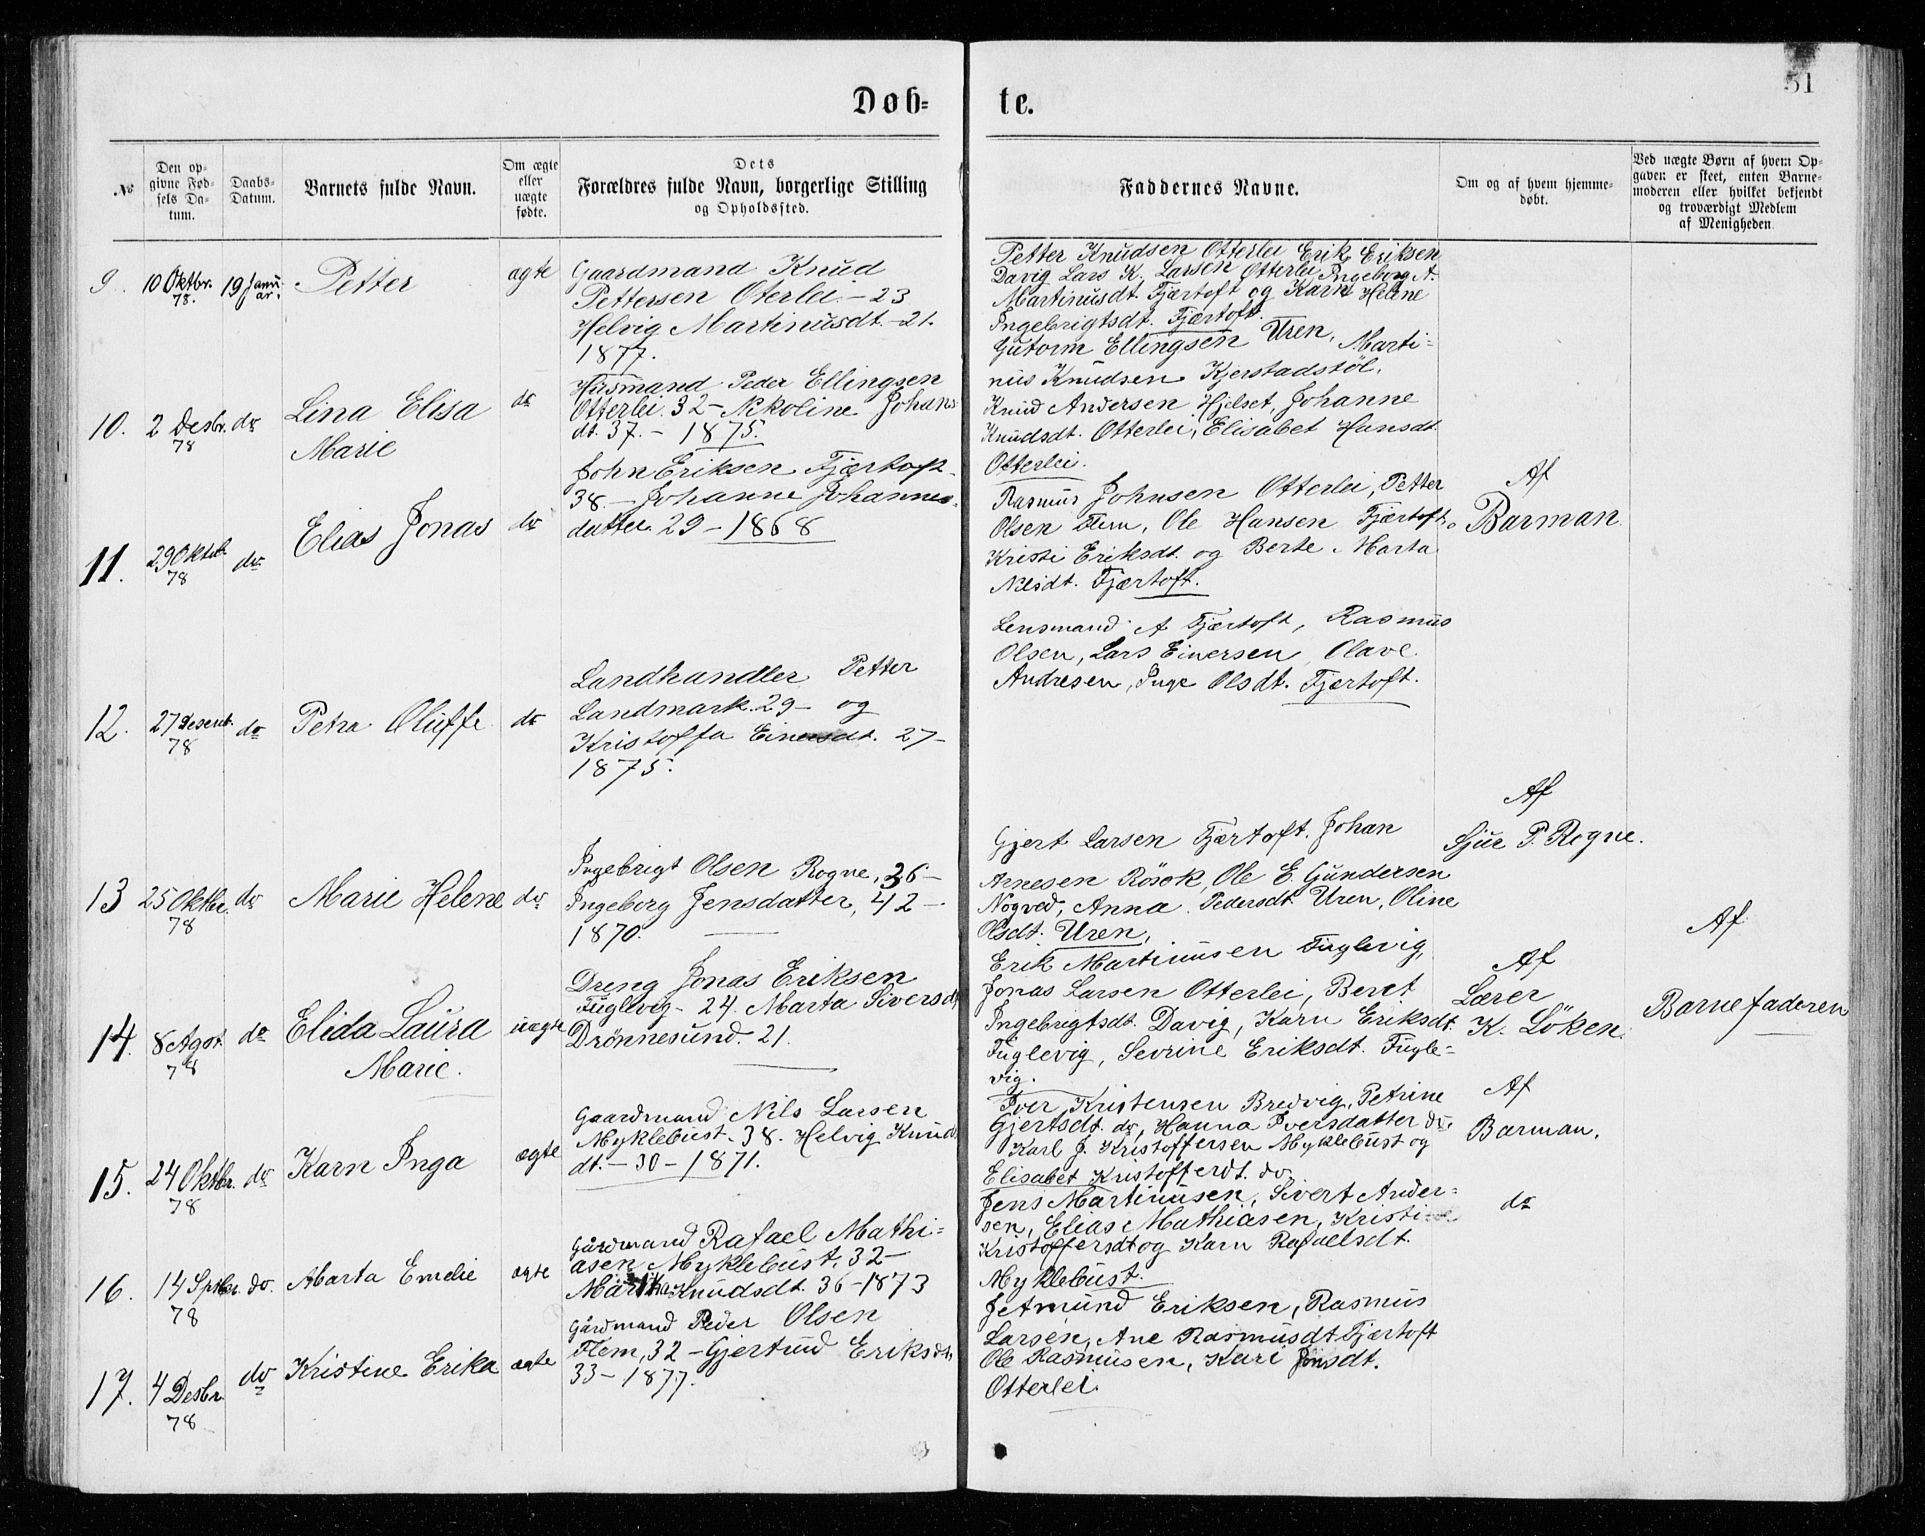 Døb-
te.
51
No
Den op-
givne Fød-
sels Da-
tum.
Daabs-
Datum.
Barnets fulde Navn.
Om ægte
eller
uægte
fødte.
Dets
Forældres fulde Navn, borgerlige Stilling
og Opholdssted.
Faddernes Navne.
Om og af hvem hjemme-
døbt.
Ved uægte Børn af hvem Op-
gaven er skeet, enten Barne-
moderen eller hvilket bekjendt
og troværdigt Medlem
af Menigheden.
9. 10 Oktbr. 78. 19 Janu-ar. Petter ægte
Gaardmand Knud
Pettersen Oterlei - 23
Helvig Martinusdt. - 21.
1877.
Petter Knudsen Otterlei Erik Eriksen
Davig Lars K. Larsen Otterlei Ingeborg A.
Martinusdt. Fjærtoft og Karn Helene
Ingebrigtsdt. Fjærtoft.
10. 2 Desbr. 78 do Lina Elisa
Marie
do
Husmand Peder Ellingsen
Otterlei. 32 - Nikoline Johans
dt. 37. - 1875.
Gutorm Ellingsen Uren, Marti-
nus Knudsen Kjerstadstöl,
Knud Andersen Hjelset, Johanne
Knudsdt. Otterlei, Elisabet Hansdt.
Otterlei.
11. 29 Oktob. 78 do Elias Jonas do
John Eriksen Fjærtoft
38 - Johanne Johannes-
datter 29 - 1868
Rasmus Johnsen Otterlei, Petter
Olsen Flem, Ole Hansen Fjærtoft,
Kristi Eriksdt. og Berte Marta
Nilsdt. Fjærtoft.
Af
Barman
12. 27 Desemb. 78 do Petra Oluffe do
Landhandler Petter
Landmark. 29 - og
Kristoffa Einersdt. 27 -
1875.
Lensmand A Fjærtoft, Rasmus
Olsen, Lars Einersen, Olave
Andresen, Inge Olsdt. Fjærtoft.
13 25 Oktbr. 78 do Marie Helene do
Ingebrigt Olsen Rogne, 36 -
Ingeborg Jensdatter, 42 -
1870.
Gjert Larsen Fjærtoft. Johan
Arnesen Rösok, Ole E. Gundersen
Nogved, Anna Pedersdt. Uren, Oline
Olsdt. Uren,
Af
Sjur P. Rogne.
14. 8 Agst. 78 do Elida Laura
Marie.
uægte
Dreng Jonas Eriksen
Fuglevig - 24. Marta Siversdt
Drönnesund. 21.
Erik Martinusen Fuglevig,
Jonas Larsen Otterlei, Beret
Ingebrigtsdt. Davig, Karn Eriksdt.
Fuglevig, Sevrine Eriksdt. Fugle-
vig.
Af
Lærer
K. Löken.
Af
Barnefaderen
15. 24 Oktbr. 78 do Karn Inga ægte
Gaardmand Nils Larsen
Myklebust. 38. Helvig Knuds
dt. - 30 - 1871.
Iver Kristensen Bredvig, Petrine
Gjertsdt. do, Hanna Iversdatter do,
Karl J. Kristoffersen Myklebust og
Elisabet Kristofferdt. do.
Af
Barman.
16. 14 Septbr. 78 do. Marta Emelie ægte
Gårdmand Rafael Mathi-
asen Myklebust, 32 -
Marthe Knudsdt. 36 - 1873
Jens Martinusen, Sivert Ander-
sen, Elias Mathiasen, Kristine
Kristoffersdt og Karn Rafaelsdt.
Myklebust.
do
17. 4 Desbr 78 do Kristine Erika ægte
Gårdmand Peder Olsen
Flem, 32 - Gjertrud Eriksdt.
33 - 1877.
Jetmund Eriksen, Rasmus
Larsen, Ane Rasmusdt Fjærtoft
Ole Rasmusen, Kari Jonsdt.
Otterlei.